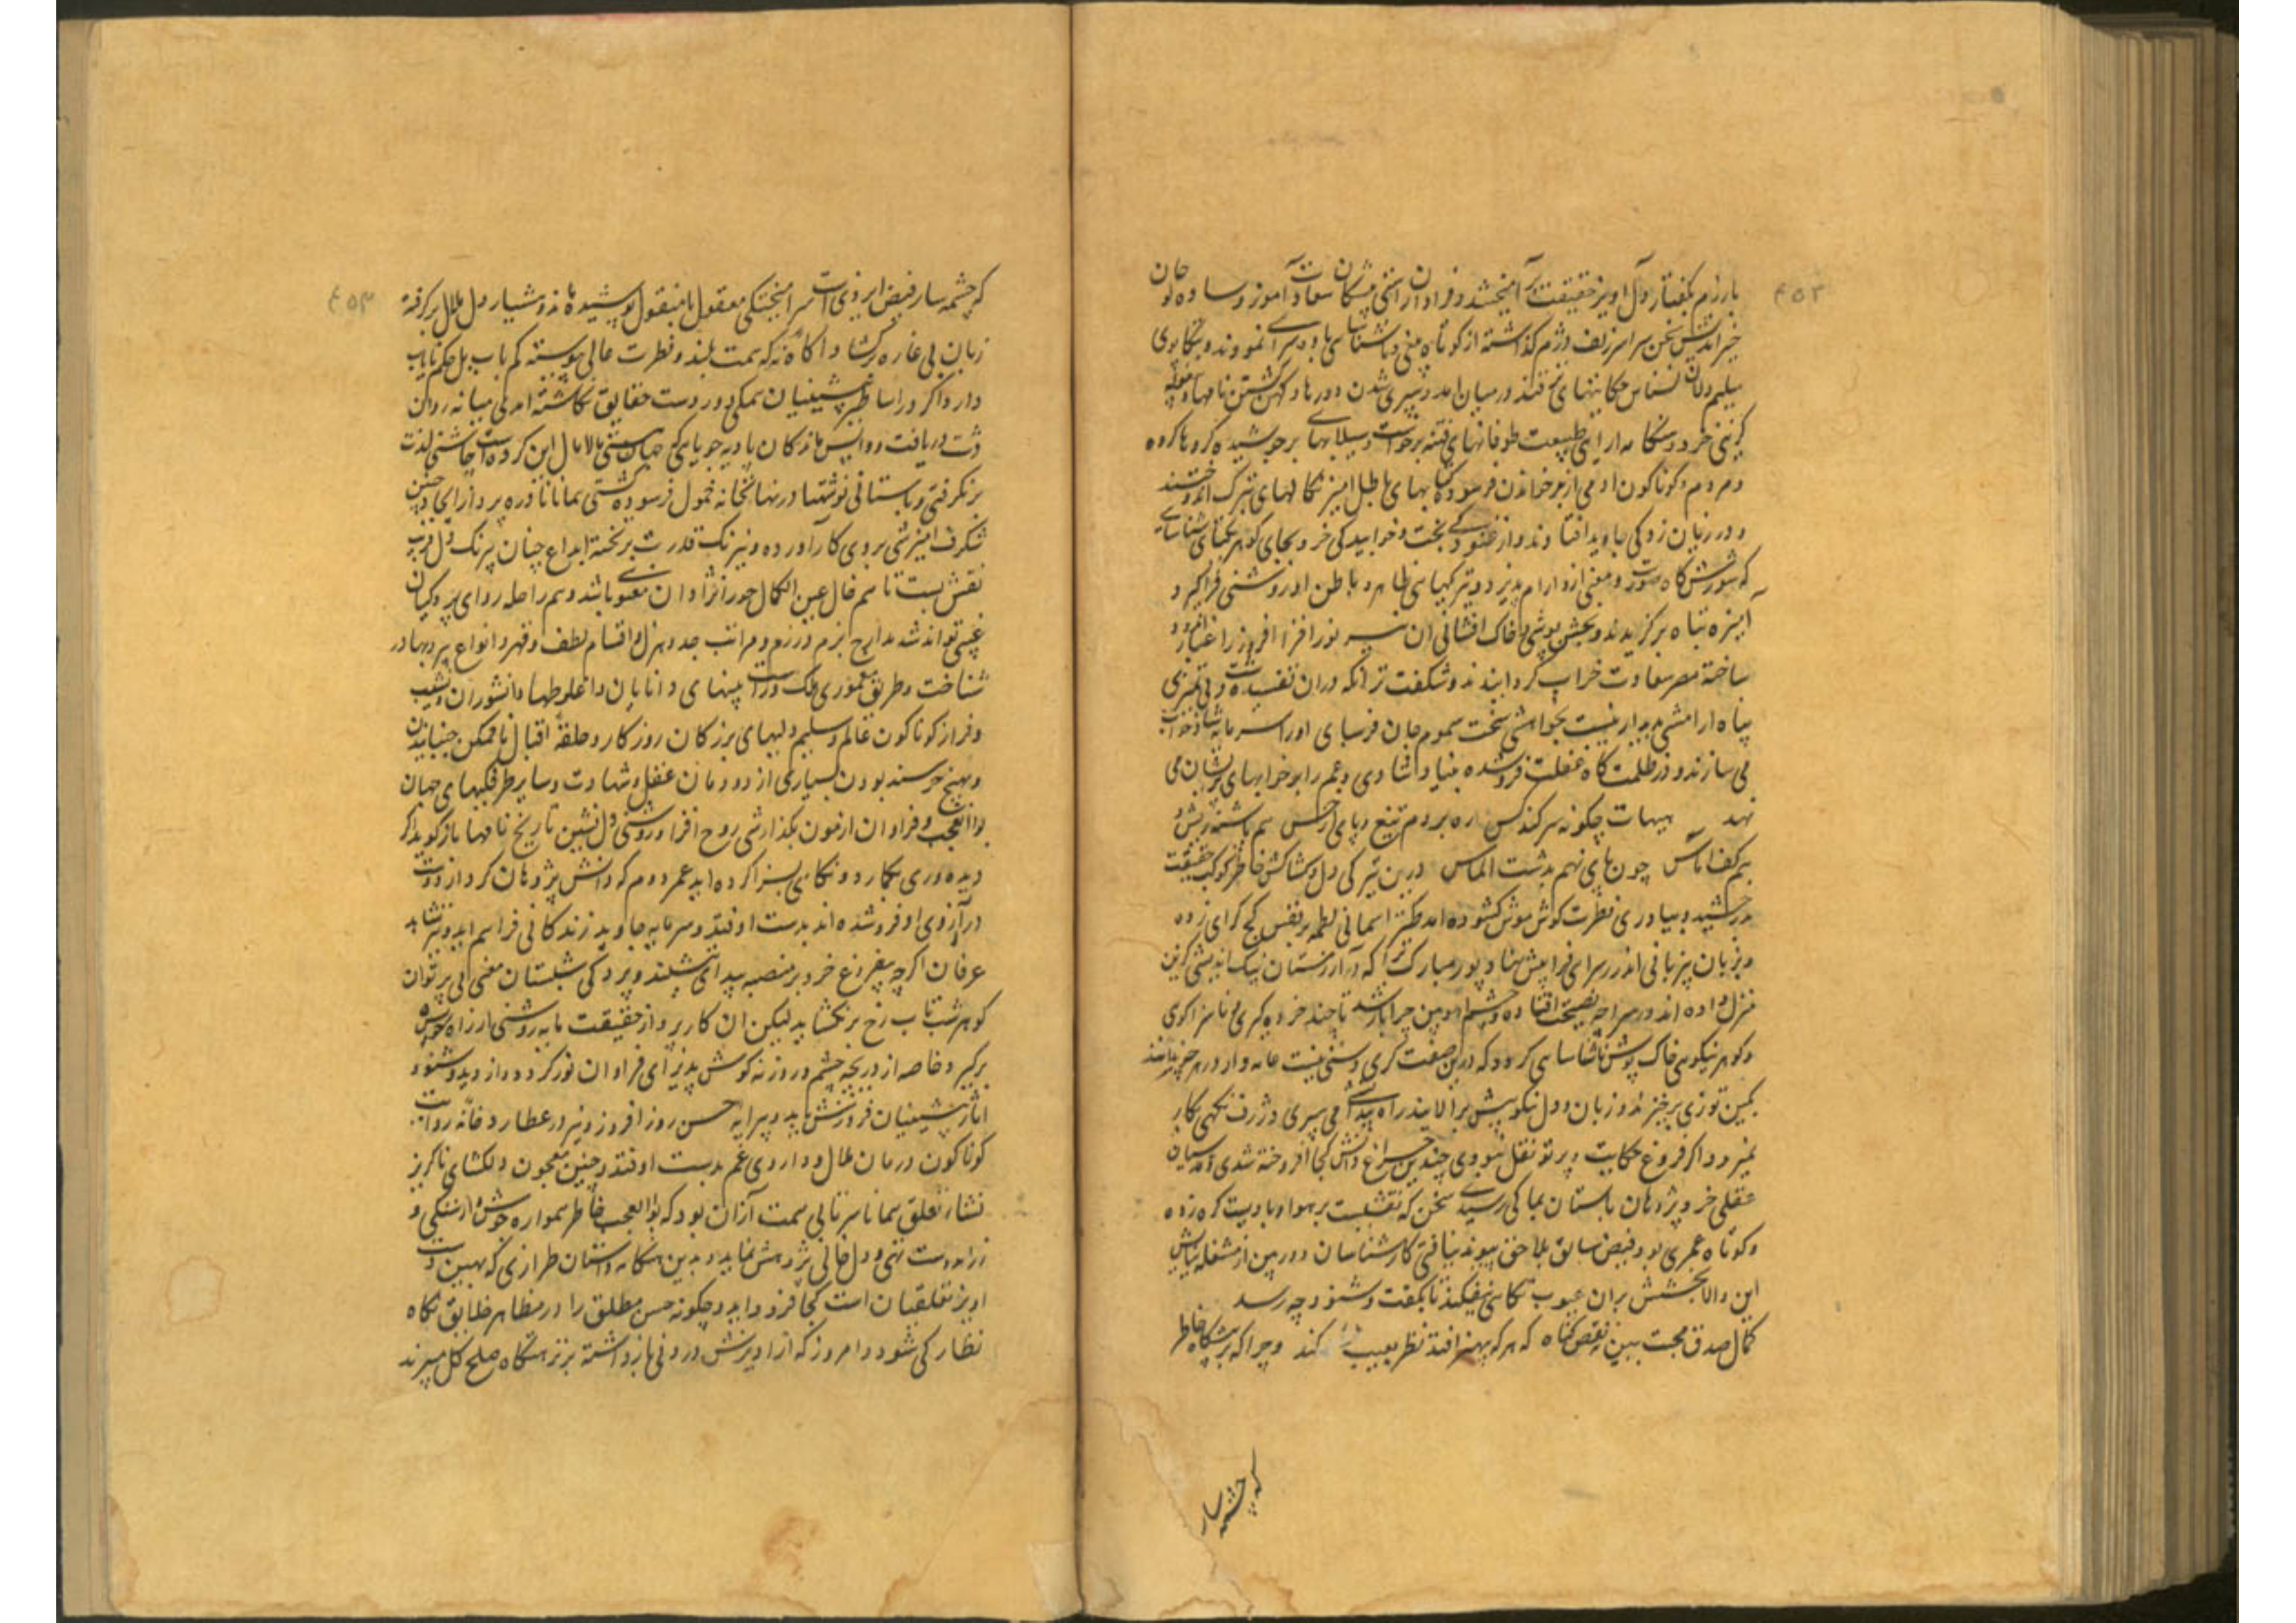 ۴۵۲
بارزم بگفتار دل آویز حقیقت آمیختند و فراوان راستی منشان سعادت آموز و ساده لوحان
خیر اندیش سخن سرا سر زیف دژم گذاشته از کوتاه بینی و ناشناسایی یاوه سرا نمودند و بتکاپوی
سلیم دلان نسناس حکایتهای فتنه در میان آمد و سپری شدن دورها و کهن گشتن نامها
گزینی خرد و هنگامه آرایی طبیعت طوفانهای فتنه برخاست و سیلابهای برجوشیده گروها گروه
مردم و گوناگون آدمی از بر خواندن فرسوده کتابهای باطل آمیز نکالهای بزرگ اندوختند
و در زیان زدگی جاوید افتادند و از غنودگی بخت و خوابیدگی خرد بجای گوهر یکتای شناسایی
که شورش گاه صورت و معنی ازو آرام پذیرد و تیرگیهای ظاهر و باطن ازو روشنی فراگیرد
آمیزه تباه برگزیدند و بچشم پوشی و خاک افشانی آن نیر نور افزا افروز را غبار آلود
ساخته مصر سعادت خراب گردانیدند و شگفت تر آنکه در آن تفسیده دشت بی تمیزی
پناه آرامش پدیدار نیست بخواهش سخت سموم جان فرسای او را سرمایه شادخواب
می سازند و در ظلمتگاه غفلت فرو شده بنیاد شادی و غم را بر خوابهای پریشان می
نهد هیهات چگونه سر کند کس ره بر دم تیغ و پای از خس هم پاشنه ریش و
هم کف آماس چون پای نهم بدشت الماس درین تیرگی دل و کشاکش خاطر کوکب حقیقت
درخشید و بیاوری فطرت گوش هوش گشوده آمد طنز آسمانی لطمه بر نفس کج گرای زده
و بزبان بیزبانی اندرز سرای فرا پیش نهاد پور مبارک ترا که در آرزستان نیک اندیشی گزین
منزل داده اند در سر چه نصیحت افتاده و چشم دوبین چرا باز شد تا چند خرده گیری و ناسزا گوی
و گوهر نیکویی خاک پوش ناشناسایی گردد که درین صفت گری و سخن نیست عامه وار در هر چیز
کمین توزی برخیزند و زبان و دل نکوهش برآلایند راه پیدایی می سپری و ژرف نگهی بکار
نمیرود اگر فروغ حکایت و پرتو نقل نبودی چندین چراغ دانش کجا افروخته شدی و آسیان
عقلی خرد پژوهان باستان بما کی رسیدی سخن که نقشیست بر هوا و بادیست گره زده
و کوتاه عمری بود فیض سابق بلاحق پیوند نیافتی کارشناسان دوربین از مشغله ستایش
این والا بخشش بران عیوب نگاهی نیفکند تا بگفت و شنود چه رسد
کمال صدق محبت ببین نه نقص گناه که هر که بیهنر افتد نظر بعیب کند و چرا که بر پیشگاه خاطر
که چشمه سار
۴۵۳
که چشمه سار فیض ایزدی است سر آمیختگی معقول با منقول پوشیده ماند و هشیار دل ملال برگرفته
زبان بی غاره برگشاد آگاه نه که همت بلند و فطرت عالی پیوسته کم یاب بل حکم نایاب
دارد اگر در اساطیر پیشینیان همگی و در دست حقایق نگاشته آمدی میانه روان
دشت دریافت و واپس ماندگان بادیه جویایی که جهان هستی مالامال این گروه است چاشنی لذت
برنگرفتی و باستانی نوشتها در نهانخانه خمول فرسوده گشتی همانا نادره پرداز ایجاد چنین
شگرف آمیزشی بر وی کار آورده و نیرنگ قدرت بر تخته ابداع چنان پیرنگ دل فریب
نقش بست تا هم خال عین الکمال حور نژادان معنوی باشد و هم راحله روای پردگیان
غیبی تواند شد مدارج بزم و رزم و مراتب جد و هزل و اقسام لطف و قهر و انواع پردیها در
شناخت و طریق معموری ملک و راست بینیهای دانایان و اغلوطهای دانشوران و نشیب
و فراز گوناگون عالم و سلیم دلیهای بزرگان روزگار و حلقه اقبال ناممکن جنبانیدن
و بهیچ خرسند بودن بسیاری از دودمان عقل و شهادت و سایر طرفگیهای جهان
بوالعجب و فراوان آزمون بگذارشی روح افزا و روشنی دل نشین تاریخ نامها بازگوید اگر
دیده وری بکار رود نگاهی بسزا کرده آید عمر دوم که دانش پژوهان کردار دوست
در آرزوی او فرو شده اند بدست اوفتد و سرمایه جاوید زندگانی فراهم آید و نیز شاید
عرفان اگرچه بفروغ خرد بر منصه پیدایی نشیند و پردگی شبستان معنی بی پرتو آن
گوهر شب تاب رخ بر نگشاید لیکن آن کارپرداز حقیقت مایه روشنی از راه حواس
برگیرد خاصه از دریچه چشم و روزنه گوش پذیرای فراوان نور گردد و از دید و شنود
آثار پیشینیان فزونش پدید و پیرایه حسن روز افزون و نیز در عطارد خانه روایت
گوناگون درمان ملال و داروی غم بدست اوفتد و چنین معجون دلگشای ناگزیر
نشاء تعلق همانا سر تابی همت آزان بود که بوالعجب خاطر همواره جوش وارستگی و
زند دست تهی و دل خالی پژوهش نماید و بدین هنگامه داستان طرازی که بهین دست
آویز تعلقیان است کجا فرود آید و چگونه حسن مطلق را در مظاهر خلایق نگاه
نظارگی شود و امروز که از آویزش درونی باز داشته بر نزهتگاه صلح کل میبرند